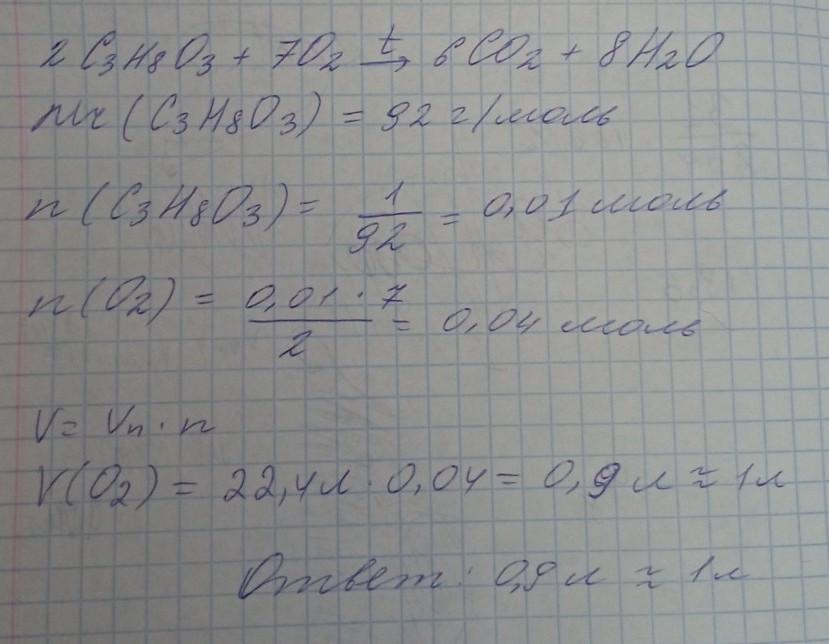 2 C3H8O3 + 7O2 t→ 6CO2 + 8H2O
Mr (C3H8O3) = 92 г/моль
n (C3H8O3) = 1/92 = 0,01 моль
n (O2) = 0,01 · 7/2 = 0,04 моль
V = Vn · n
V(O2) = 22,4л · 0,04 = 0,9 л ≈ 1л
Ответ: 0,9 л ≈ 1л